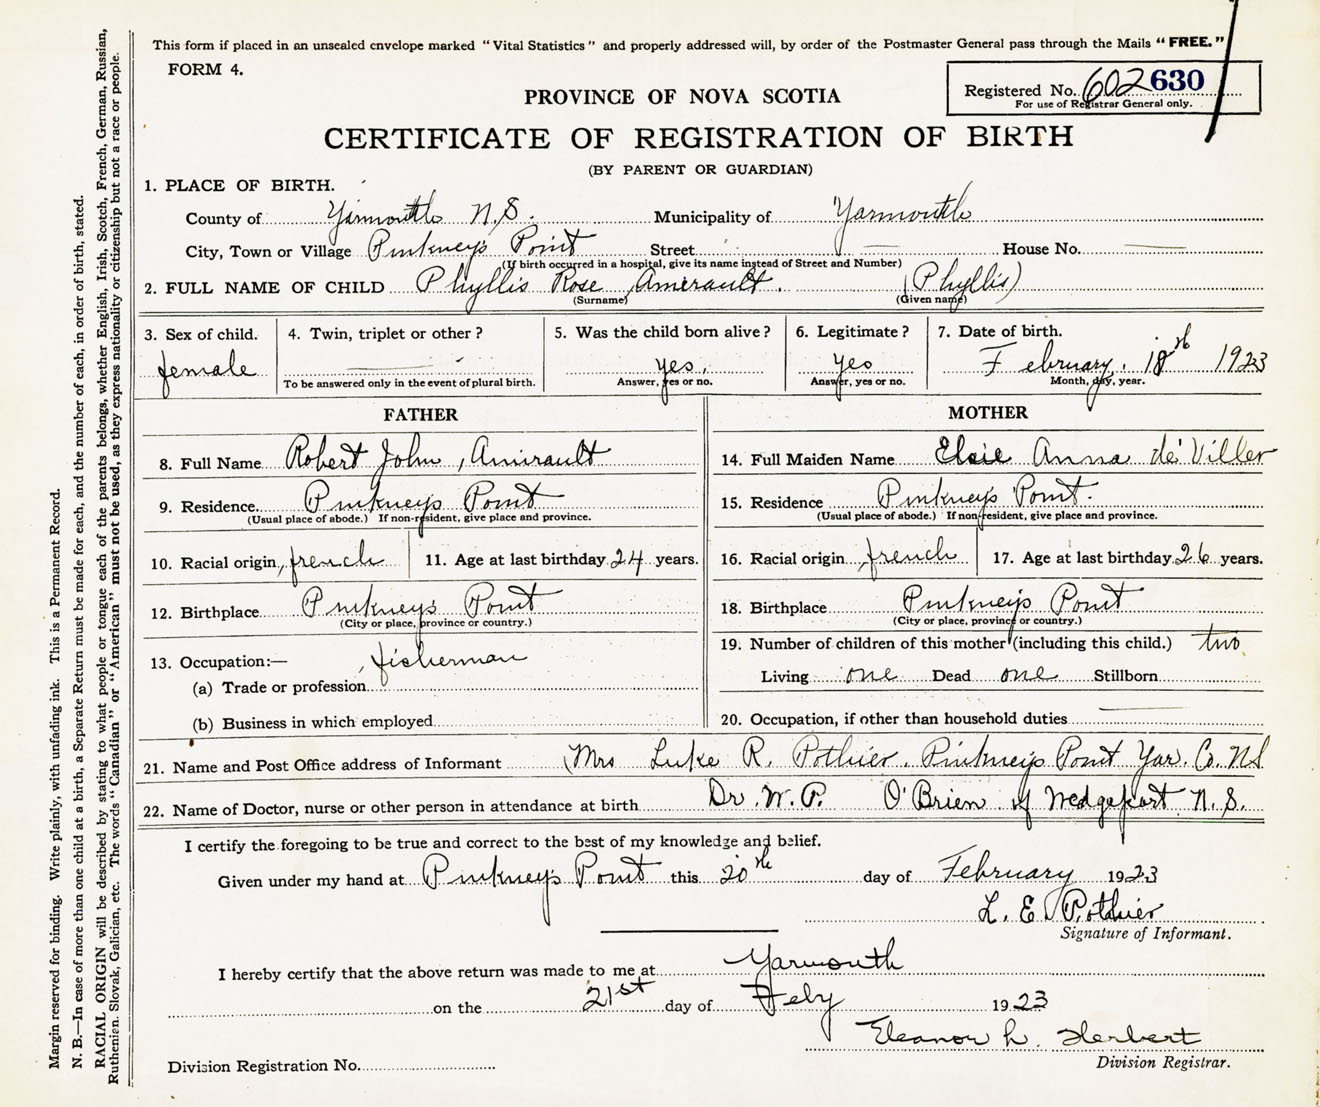 This form if placed in an unsealed cnvelope marked "Vital Statistics" and properly addressed will, by order of the Postmaster General pass through the Mails "FREE."
FORM 4.
Registered No. 602630
For use of Registrar General only.
PROVINCE OF NOVA SCOTIA
CERTIFICATE OF REGISTRATION OF BIRTH
(BY PARENT OR GUARDIAN)
1. PLACE OF BIRTH.
County of Yarmouth N.S. Municipality of Yarmouth
City, Town or Village Pinkney's Point Street — House No. —
(If birth occurred in a hospital, give its name instead of Street and Number)
2. FULL NAME OF CHILD Phyllis Rose Amirault. (Phyllis)
(Surname) (Given name)
3. Sex of child. 4. Twin, triplet or other? 5. Was the child born alive? 6. Legitimate? 7. Date of birth.
female — yes. yes February. 18th 1923
To be answered only in the event of plural birth. Answer, yes or no. Answer, yes or no. Month, day, year.
FATHER MOTHER
8. Full Name Robert John, Amirault 14. Full Maiden Name Elsie Anna de'Viller
9. Residence Pinkney's Point 15. Residence Pinkney's Point.
(Usual place of abode.) If non-resident, give place and province. (Usual place of abode.) If non-resident, give place and province.
10. Racial origin, french 11. Age at last birthday 24 years. 16. Racial origin french 17. Age at last birthday 26 years.
12. Birthplace Pinkney's Point 18. Birthplace Pinkney's Point
(City or place, province or country.) (City or place, province or country.)
13. Occupation:— fisherman 19. Number of children of this mother (including this child.) two
(a) Trade or profession Living one Dead one Stillborn
(b) Business in which employed 20. Occupation, if other than household duties —
21. Name and Post Office address of Informant (Mrs Luke R. Pothier. Pinkney's Point Yar. Co. NS
22. Name of Doctor, nurse or other person in attendance at birth Dr. W. P. O'Brien of Wedgeport N.S.
I certify the foregoing to be true and correct to the best of my knowledge and belief.
Given under my hand at Pinkney's Point this 20th day of February 1923
L. E. Pothier
Signature of Informant.
I hereby certify that the above return was made to me at Yarmouth
on the 21st day of Feby 1923
Eleanor L. Herbert
Division Registrar.
Division Registration No.
Margin reserved for binding. Write plainly, with unfading ink. This is a Permanent Record.
N. B.—In case of more than one child at a birth, a Separate Return must be made for each, and the number of each, in order of birth, stated.
RACIAL ORIGIN will be described by stating to what people or tongue each of the parents belongs, whether English, Irish, Scotch, French, German, Russian,
Ruthenian, Slovak, Galician, etc. The words "Canadian" or "American" must not be used, as they express nationality or citizenship but not a race or people.